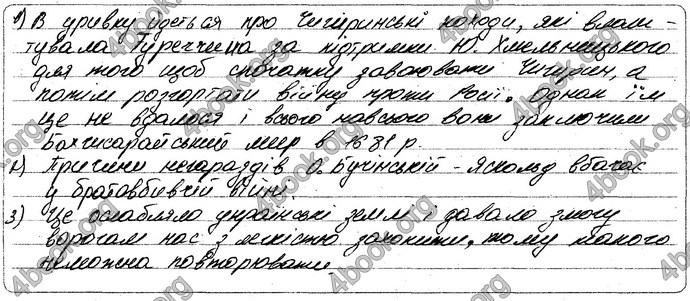 1) В уривку йдеться про Чигиринські походи, які влаш-
тувала Туреччина за підтримки Ю. Хмельницького
для того щоб спочатку завоювати Чигирин, а
потім розгортати війну проти Росії. Однак їм
це не вдалося і всього навсього вони заключили
Бахчисарайський мир в 1681 р.
2) Причини негараздів О. Бучинський-Яскольд вбачає
у братовбивчій війні.
3) Це ослабляло українські землі і давало змогу
ворогам нас з легкістю захопити, тому такого
неможна повторювати
4book.org